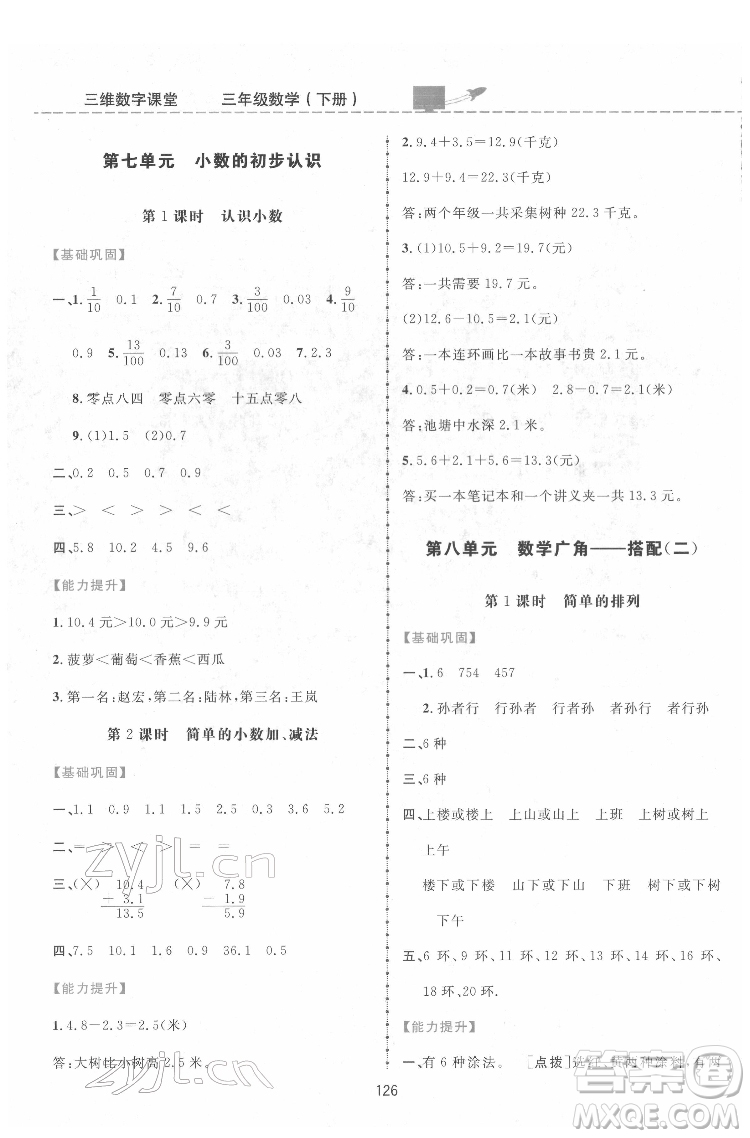 三维数字课堂 三年级数学(下册)
第七单元 小数的初步认识
第1课时 认识小数
【基础巩固】
一、1. 1/10 0.1 2. 7/10 0.7 3. 3/100 0.03 4. 9/10
0.9 5. 13/100 0.13 6. 3/100 0.03 7. 2.3
8. 零点八四 零点六零 十五点零八
9. (1)1.5 (2)0.7
二、0.2 0.5 0.7 0.9
三、> < > < < <
四、5.8 10.2 4.5 9.6
【能力提升】
1. 10.4元>10.0元>9.9元
2. 菠萝<葡萄<香蕉<西瓜
3. 第一名:赵宏,第二名:陆林,第三名:王岚
第2课时 简单的小数加、减法
【基础巩固】
一、1.1 0.9 1.5 0.8 3.6 5.2
二、
三、(×) 10.4 (×) 7.8
+ 3.1 - 1.9
13.5 5.9
四、7.5 10.1 1.6 0.9 36.1 0.5
【能力提升】
1. 4.8-2.3=2.5(米)
答:大树比小树高2.5米。
2. 9.4+3.5=12.9(千克)
12.9+9.4=22.3(千克)
答:两个年级一共采集树种22.3千克。
3. (1)10.5+9.2=19.7(元)
答:一共需要19.7元。
(2)12.6-10.5=2.1(元)
答:一本连环画比一本故事书贵2.1元。
4. 0.5+0.2=0.7(米) 2.8-0.7=2.1(米)
答:池塘中水深2.1米。
5. 5.6+2.1+5.6=13.3(元)
答:买一本笔记本和一个讲义夹一共13.3元。
第八单元 数学广角——搭配(二)
第1课时 简单的排列
【基础巩固】
一、1. 6 754 457
2. 孙者行 行孙者 行者孙 者孙行 者行孙
二、6种
三、6种
四、上楼或楼上 上山或山上 上班 上树或树上
上午
楼下或下楼 山下或下山 下班 树下或下树
下午
五、6环、9环、11环、12环、13环、14环、15环、16环、
18环、20环.
【能力提升】
一、有6种涂法。[点拨]选红、黄两种涂料,有两
126
zyjl.cn
zyjl.cn
答案圈
MXQE.COM